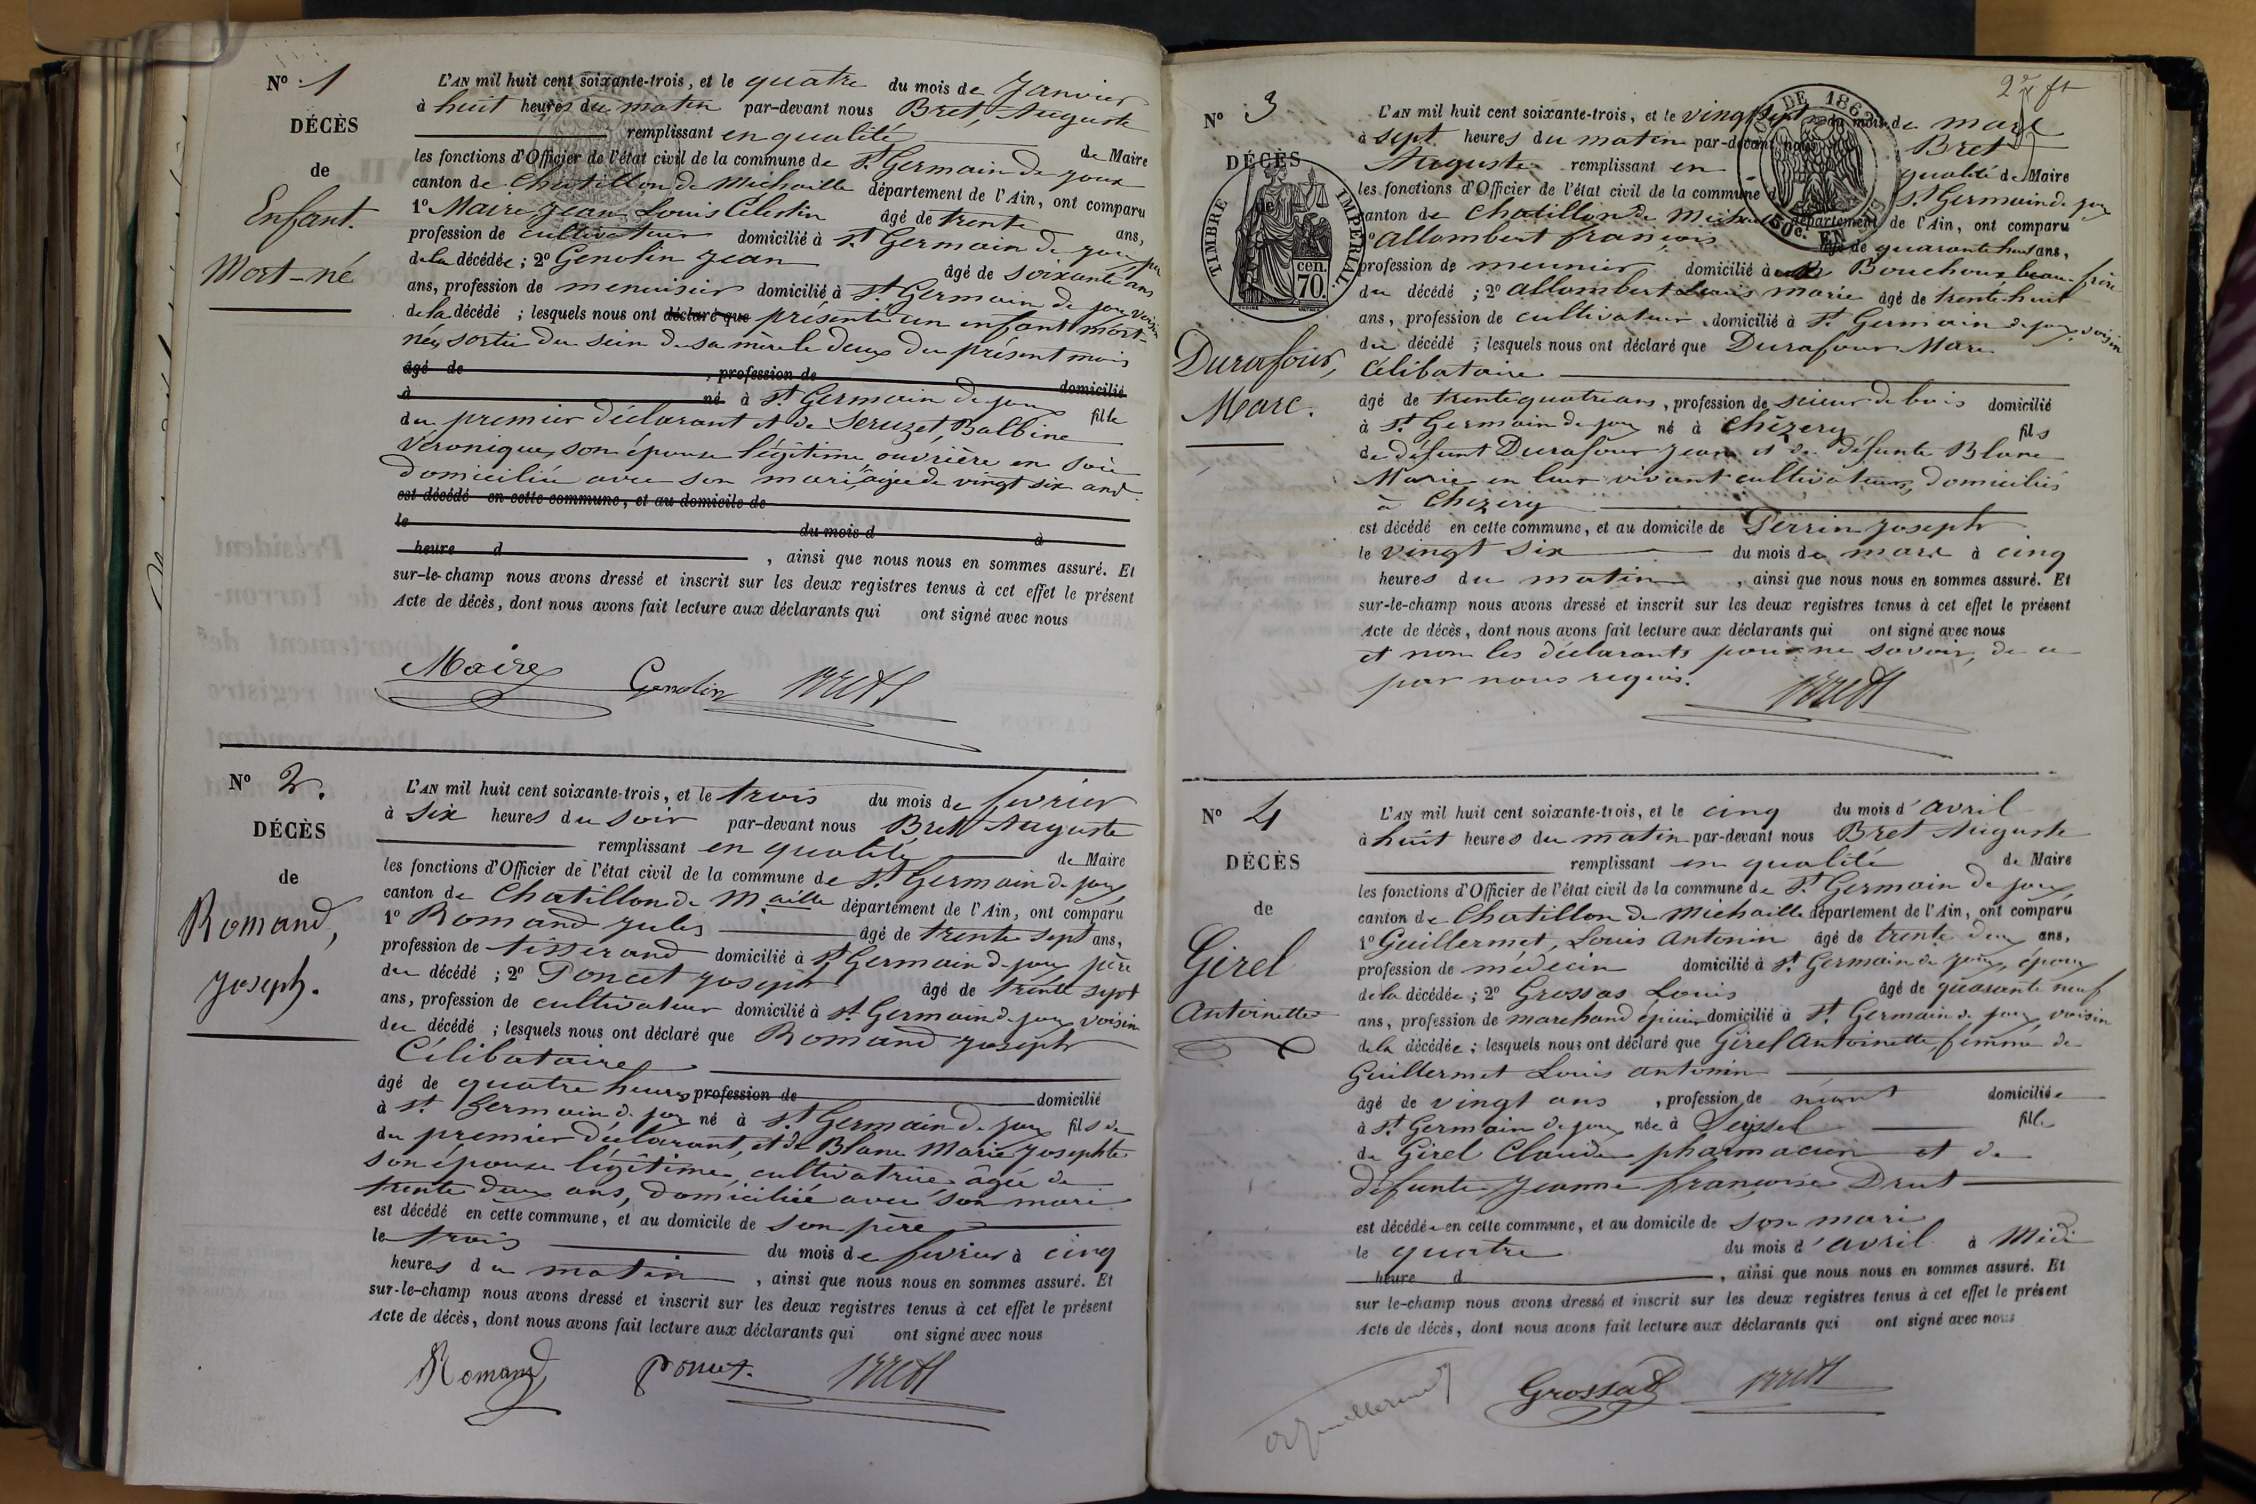 N° 1
DÉCÈS
de
Enfant.
Mort-né
L'AN mil huit cent soixante-trois, et le quatre du mois de Janvier
à huit heures du matin par-devant nous Bret, Auguste
remplissant en qualité de Maire
les fonctions d'Officier de l'état civil de la commune de St Germain de joux
canton de Chatillon de Michaille département de l'Ain, ont comparu
1° Maire Jean Louis Célestin âgé de trente ans,
profession de cultivateur domicilié à St Germain de joux père
de la décédée; 2° Genolin Jean âgé de soixante ans
ans, profession de menuisier domicilié à St Germain de joux voisin
de la décédé ; lesquels nous ont déclaré que présenté un enfant mort-
née, sortie du sein de sa mère le deux du présent mois,
âgé de , profession de domicilié
à né à St Germain de joux fille
du premier déclarant et de Seruzet, Balbine
Véronique, son épouse légitime ouvrière en soie
domiciliée avec son mari, âgée de vingt six ans
est décédé en cette commune, et au domicile de
le du mois d à
heure d , ainsi que nous nous en sommes assuré. Et
sur-le-champ nous avons dressé et inscrit sur les deux registres tenus à cet effet le présent
Acte de décès, dont nous avons fait lecture aux déclarants qui ont signé avec nous
Maire Genolin Bret
N° 2.
DÉCÈS
de
Romand,
Joseph.
L'AN mil huit cent soixante-trois, et le trois du mois de fevrier
à six heures du soir par-devant nous Bret Auguste
remplissant en qualité de Maire
les fonctions d'Officier de l'état civil de la commune de St Germain de joux,
canton de Chatillon de Maille département de l'Ain, ont comparu
1° Romand Jules âgé de trente sept ans,
profession de tisserand domicilié à St Germain de joux père
du décédé ; 2° Poncet Joseph âgé de trente sept
ans, profession de cultivateur domicilié à St Germain de joux voisin
du décédé ; lesquels nous ont déclaré que Romand Joseph
Célibataire
âgé de quatre heures profession de domicilié
à St Germain de joux né à St Germain de joux fils de
du premier déclarant, et de Blanc Marie Josephte
son épouse légitime, cultivatrice âgée de
trente deux ans, domiciliée avec son mari
est décédé en cette commune, et au domicile de son père
le trois du mois de fevrier à cinq
heures du matin , ainsi que nous nous en sommes assuré. Et
sur-le-champ nous avons dressé et inscrit sur les deux registres tenus à cet effet le présent
Acte de décès, dont nous avons fait lecture aux déclarants qui ont signé avec nous
Romand Poncet. Bret
N° 3
DÉCÈS
de
Durafour,
Marc.
TIMBRE IMPERIAL
cen.
70.
DE 1862
50c. EN
L'AN mil huit cent soixante-trois, et le vingt sept du mois de mars
à sept heures du matin par-devant nous Bret
Auguste remplissant en qualité de Maire
les fonctions d'Officier de l'état civil de la commune d St Germain de joux
canton de Chatillon de Michaille département de l'Ain, ont comparu
1° Allombert françois âgé de quarante huit ans,
profession de meunier domicilié à Bouchoux beau-frère
du décédé ; 2° Allombert Louis Marie âgé de trente huit
ans, profession de cultivateur domicilié à St Germain de joux voisin
du décédé ; lesquels nous ont déclaré que Durafour Marc
Célibataire
âgé de trente quatre ans, profession de scieur de bois domicilié
à St Germain de joux né à Chézery fils
de défunt Durafour Jean et de défunte Blanc
Marie en leur vivant cultivateurs, domiciliés
à Chézery
est décédé en cette commune, et au domicile de Perrin Joseph
le vingt six du mois de mars à cinq
heures du matin , ainsi que nous nous en sommes assuré. Et
sur-le-champ nous avons dressé et inscrit sur les deux registres tenus à cet effet le présent
Acte de décès, dont nous avons fait lecture aux déclarants qui ont signé avec nous
et non les déclarants pour ne savoir, de ce
par nous requis.
Bret
N° 4
DÉCÈS
de
Girel
Antoinette
L'AN mil huit cent soixante-trois, et le cinq du mois d'avril
à huit heures du matin par-devant nous Bret Auguste
remplissant en qualité de Maire
les fonctions d'Officier de l'état civil de la commune de St Germain de joux,
canton de Chatillon de Michaille département de l'Ain, ont comparu
1° Guillermet, Louis Antonin âgé de trente deux ans,
profession de médecin domicilié à St Germain de joux, époux
de la décédée; 2° Grossas Louis âgé de quarante neuf
ans, profession de marchand épicier domicilié à St Germain de joux, voisin
de la décédée; lesquels nous ont déclaré que Girel Antoinette, femme de
Guillermet Louis Antonin
âgé de vingt ans , profession de néant domiciliée
à St Germain de joux née à Seyssel fille
de Girel Claude pharmacien et de
défunte Jeanne françoise Drut
est décédée en cette commune, et au domicile de son mari
le quatre du mois d'avril à Midi
heure d , ainsi que nous nous en sommes assuré. Et
sur le-champ nous avons dressé et inscrit sur les deux registres tenus à cet effet le présent
Acte de décès, dont nous avons fait lecture aux déclarants qui ont signé avec nous
Guillermet Grossas Bret